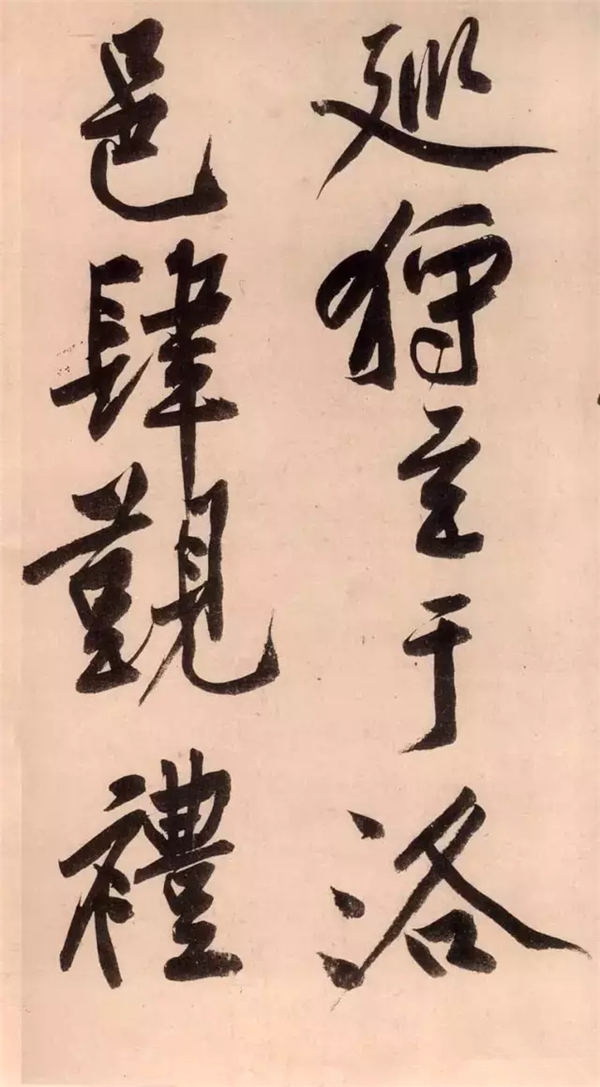 巡狩至于洛
邑肆覲禮